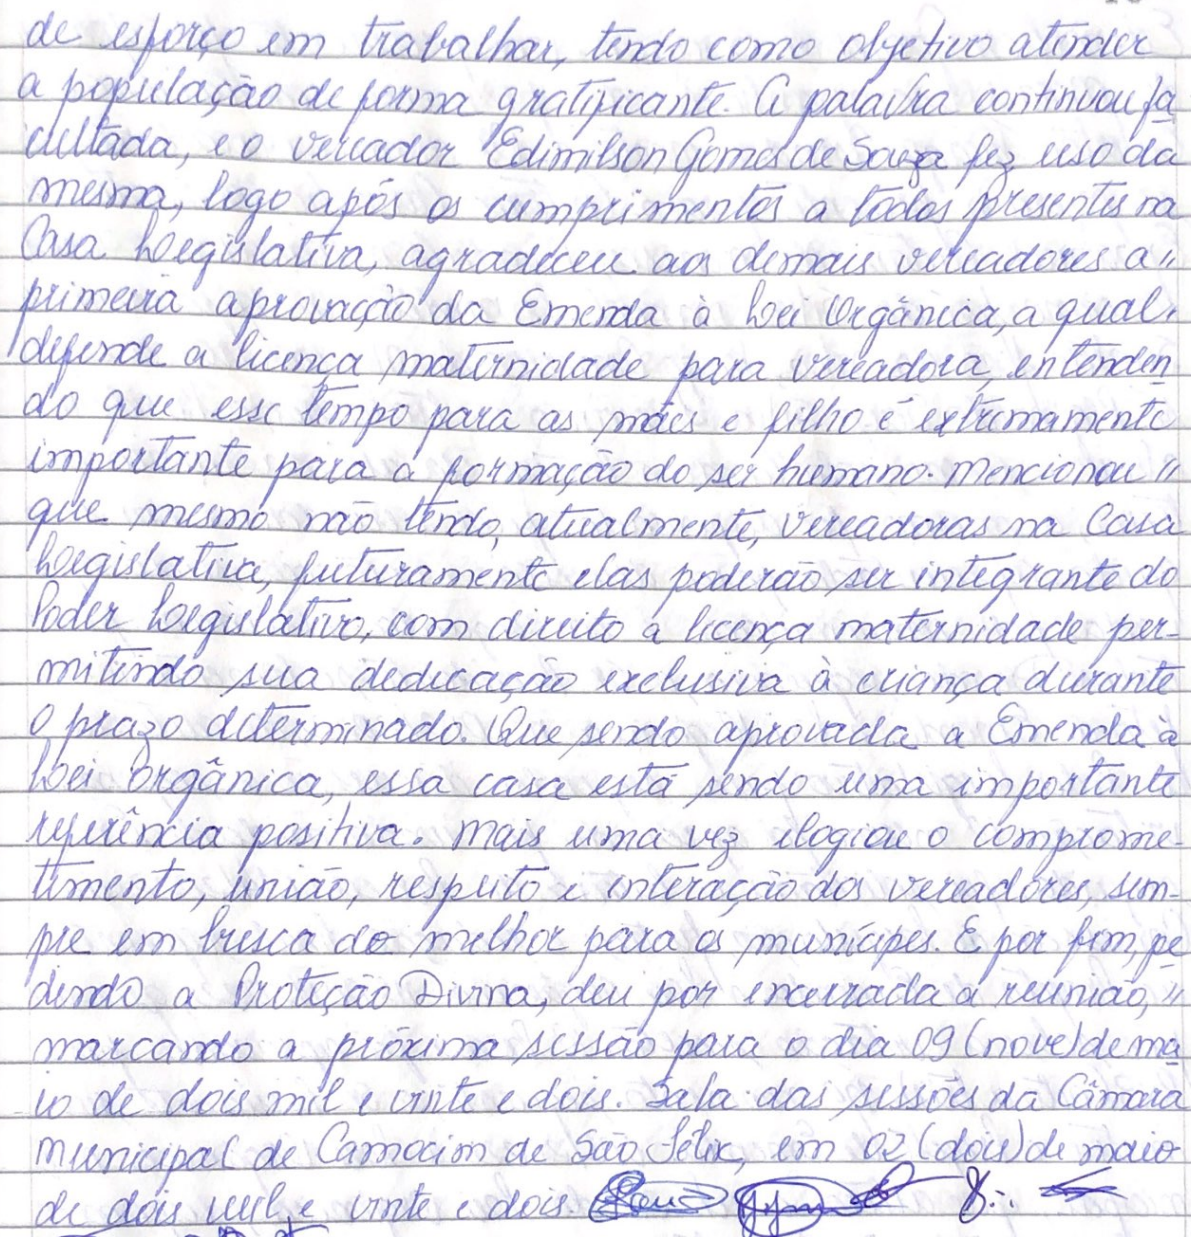 de esforço em trabalhar, tendo como objetivo atender
a população de forma gratificante. A palavra continuou fa
cultada, e o vereador Edimilson Gomes de Souza fez uso da
mesma, logo após os cumprimentos a todos presentes na
Casa Legislativa, agradeceu aos demais vereadores a "
primeira aprovação da Emenda à Lei Orgânica, a qual.
defende a licença maternidade para vereadora, entenden
do que esse tempo para as mães e filho é extremamente
importante para a formação do ser humano. Mencionou "
que mesmo não tendo, atualmente, vereadoras na Casa
Legislativa, futuramente elas poderão ser integrante do
Poder Legislativo, com direito a licença maternidade per-
mitindo sua dedicação exclusiva à criança durante
o prazo determinado. Que sendo aprovada a Emenda à
Lei orgânica, essa casa está sendo uma importante
referência positiva. Mais uma vez elogiou o comprome-
timento, união, respeito e interação dos vereadores, sem-
pre em busca do melhor para os munícipes. E por fim, pe
dindo a Proteção Divina, deu por encerrada a reunião, "
marcando a próxima sessão para o dia 09 (nove) de ma
io de dois mil e vinte e dois. Sala das sessões da Câmara
Municipal de Camocim de São Félix, em 02 (dois) de maio
de dois mil e vinte e dois.